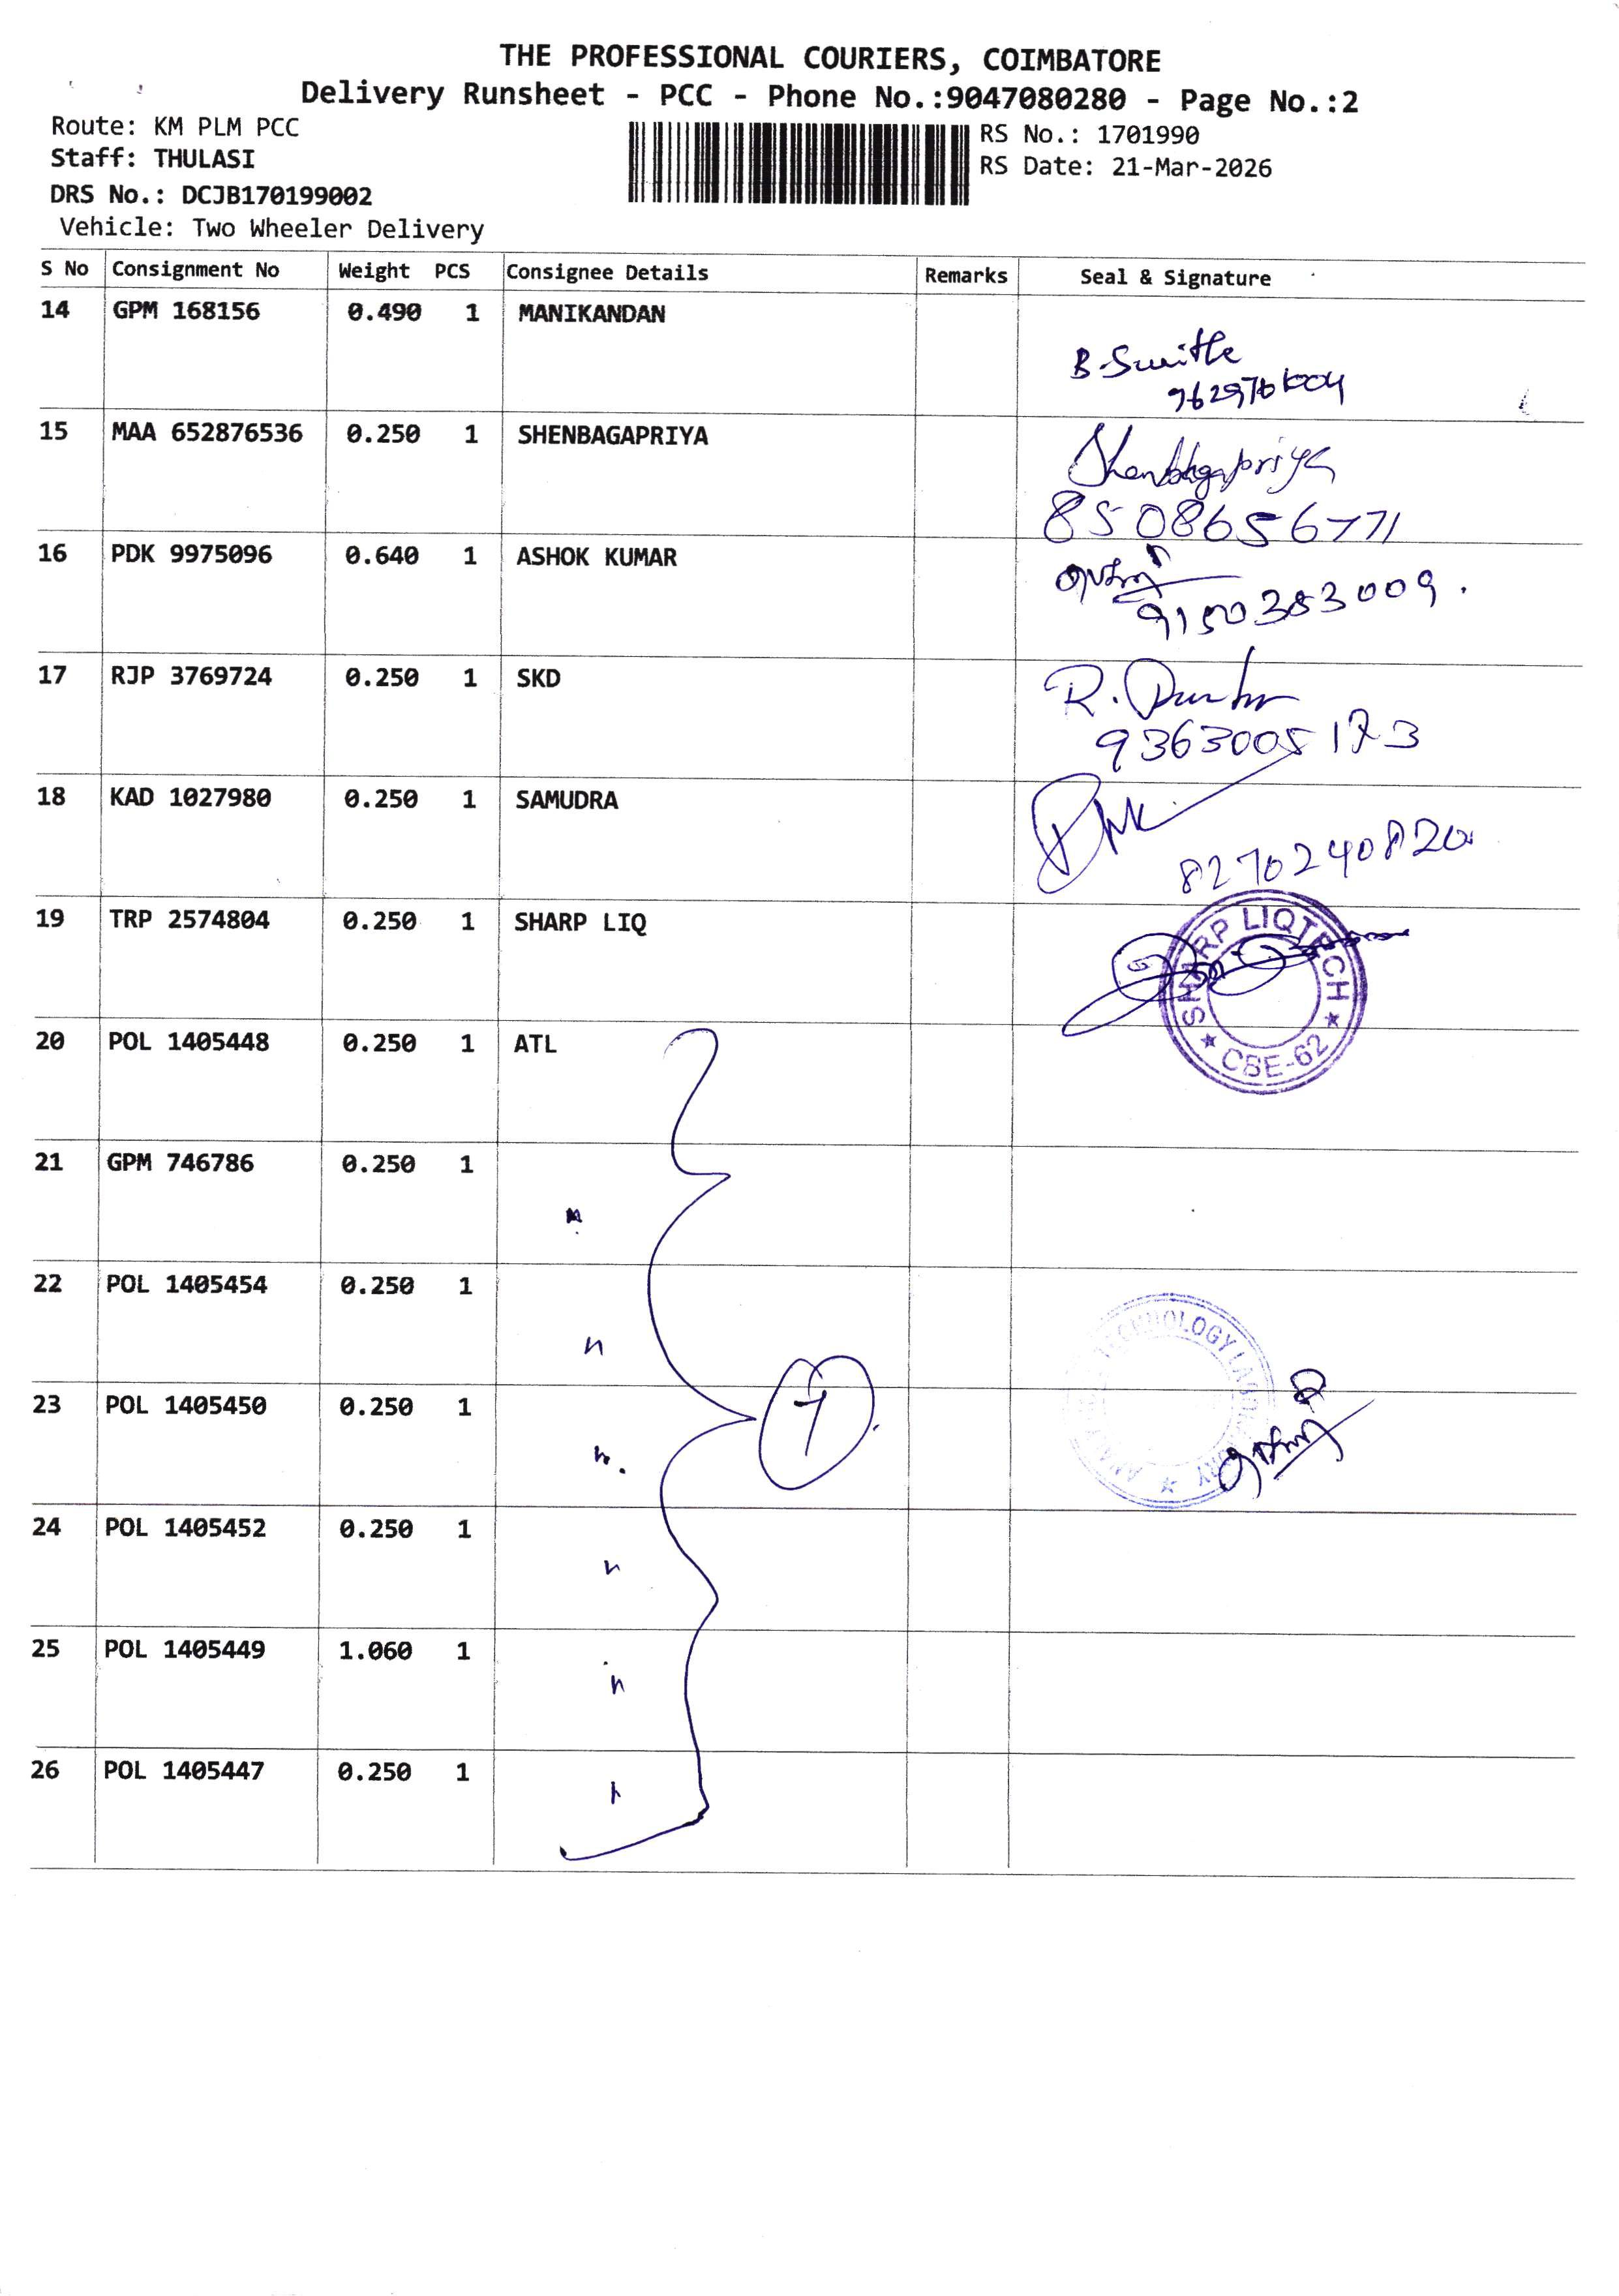 THE PROFESSIONAL COURIERS, COIMBATORE
Delivery Runsheet - PCC - Phone No.:9047080280 - Page No.:2
Route: KM PLM PCC
RS No.: 1701990
Staff: THULASI
RS Date: 21-Mar-2026
DRS No.: DCJB170199002
Vehicle: Two Wheeler Delivery
S No Consignment No Weight PCS Consignee Details Remarks Seal & Signature
14 GPM 168156 0.490 1 MANIKANDAN
15 MAA 652876536 0.250 1 SHENBAGAPRIYA Shenbagapriya
8508656771
16 PDK 9975096 0.640 1 ASHOK KUMAR
9150383009.
17 RJP 3769724 0.250 1 SKD
18 KAD 1027980 0.250 1 SAMUDRA
8270240820
19 TRP 2574804 0.250 1 SHARP LIQ
SHARP LIQTECH
★ CBE-62 ★
20 POL 1405448 0.250 1 ATL
21 GPM 746786 0.250 1
22 POL 1405454 0.250 1
23 POL 1405450 0.250 1
7
24 POL 1405452 0.250 1
25 POL 1405449 1.060 1
26 POL 1405447 0.250 1